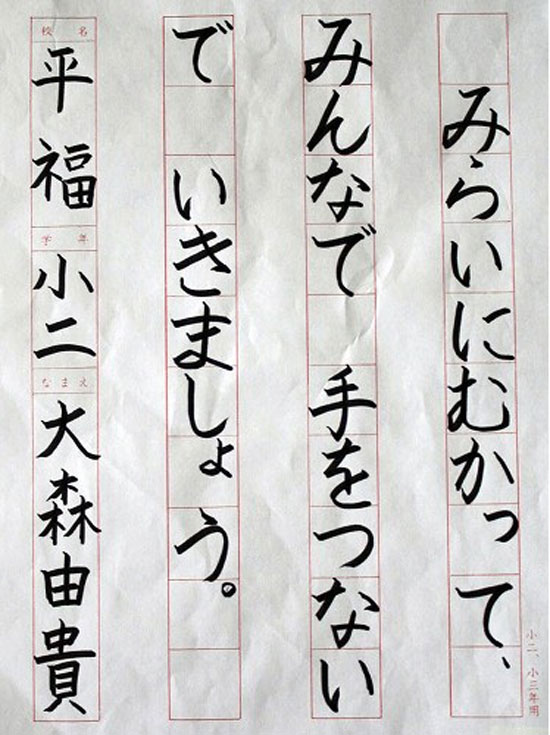 みらいにむかって、
みんなで 手をつない
で いきましょう。
校名
平福
学年
小二
なまえ
大森由貴
小二、小三年用